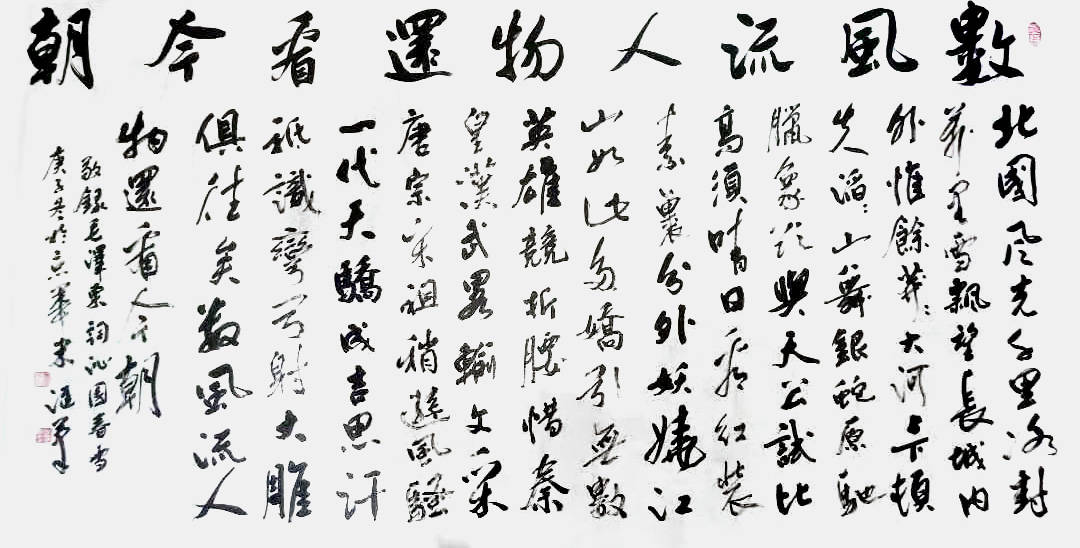 數風流人物還看今朝
北國风光千里冰封
萬里雪飄望長城內
外惟餘莽莽大河上下頓
失滔滔山舞銀蛇原馳
臘象欲與天公試比
高須晴日看紅裝
素裹分外妖嬈江
山如此多嬌引無數
英雄競折腰惜秦
皇漢武略輸文采
唐宗宋祖稍遜風騷
一代天驕成吉思汗
祇識彎弓射大雕
俱往矣數風流人
物還看今朝
敬錄毛澤東詞沁園春雪
庚子冬於京華